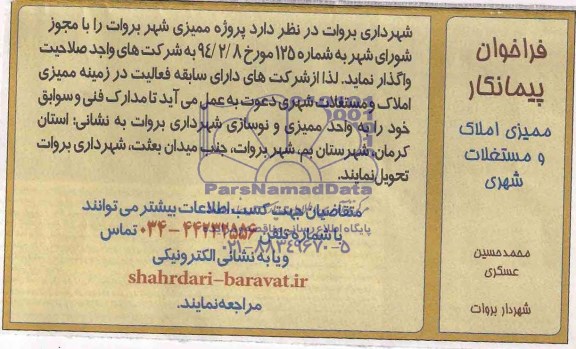 فراخوان
پیمانکار
ممیزی املاک
و مستغلات
شهری
محمدحسین
عسکری
شهردار بروات
شهرداری بروات در نظر دارد پروژه ممیزی شهر بروات را با مجوز
شورای شهر به شماره ۱۲۵ مورخ ۹۴/۲/۸ به شرکت های واجد صلاحیت
واگذار نماید. لذا از شرکت های دارای سابقه فعالیت در زمینه ممیزی
املاک و مستغلات شهری دعوت به عمل می آید تا مدارک فنی و سوابق
خود را به واحد ممیزی و نوسازی شهرداری بروات به نشانی: استان
کرمان، شهرستان بم، شهر بروات، جنب میدان بعثت، شهرداری بروات
تحویل نمایند.
ParsNamadData
متقاضیان جهت کسب اطلاعات بیشتر می توانند
با شماره تلفن ۴۴۲۳۲۵۵۶ - ۰۳۴ تماس
۰۲۱-۸۸۳۴۹۶۷۰-۵
و یا به نشانی الکترونیکی
shahrdari-baravat.ir
مراجعه نمایند.